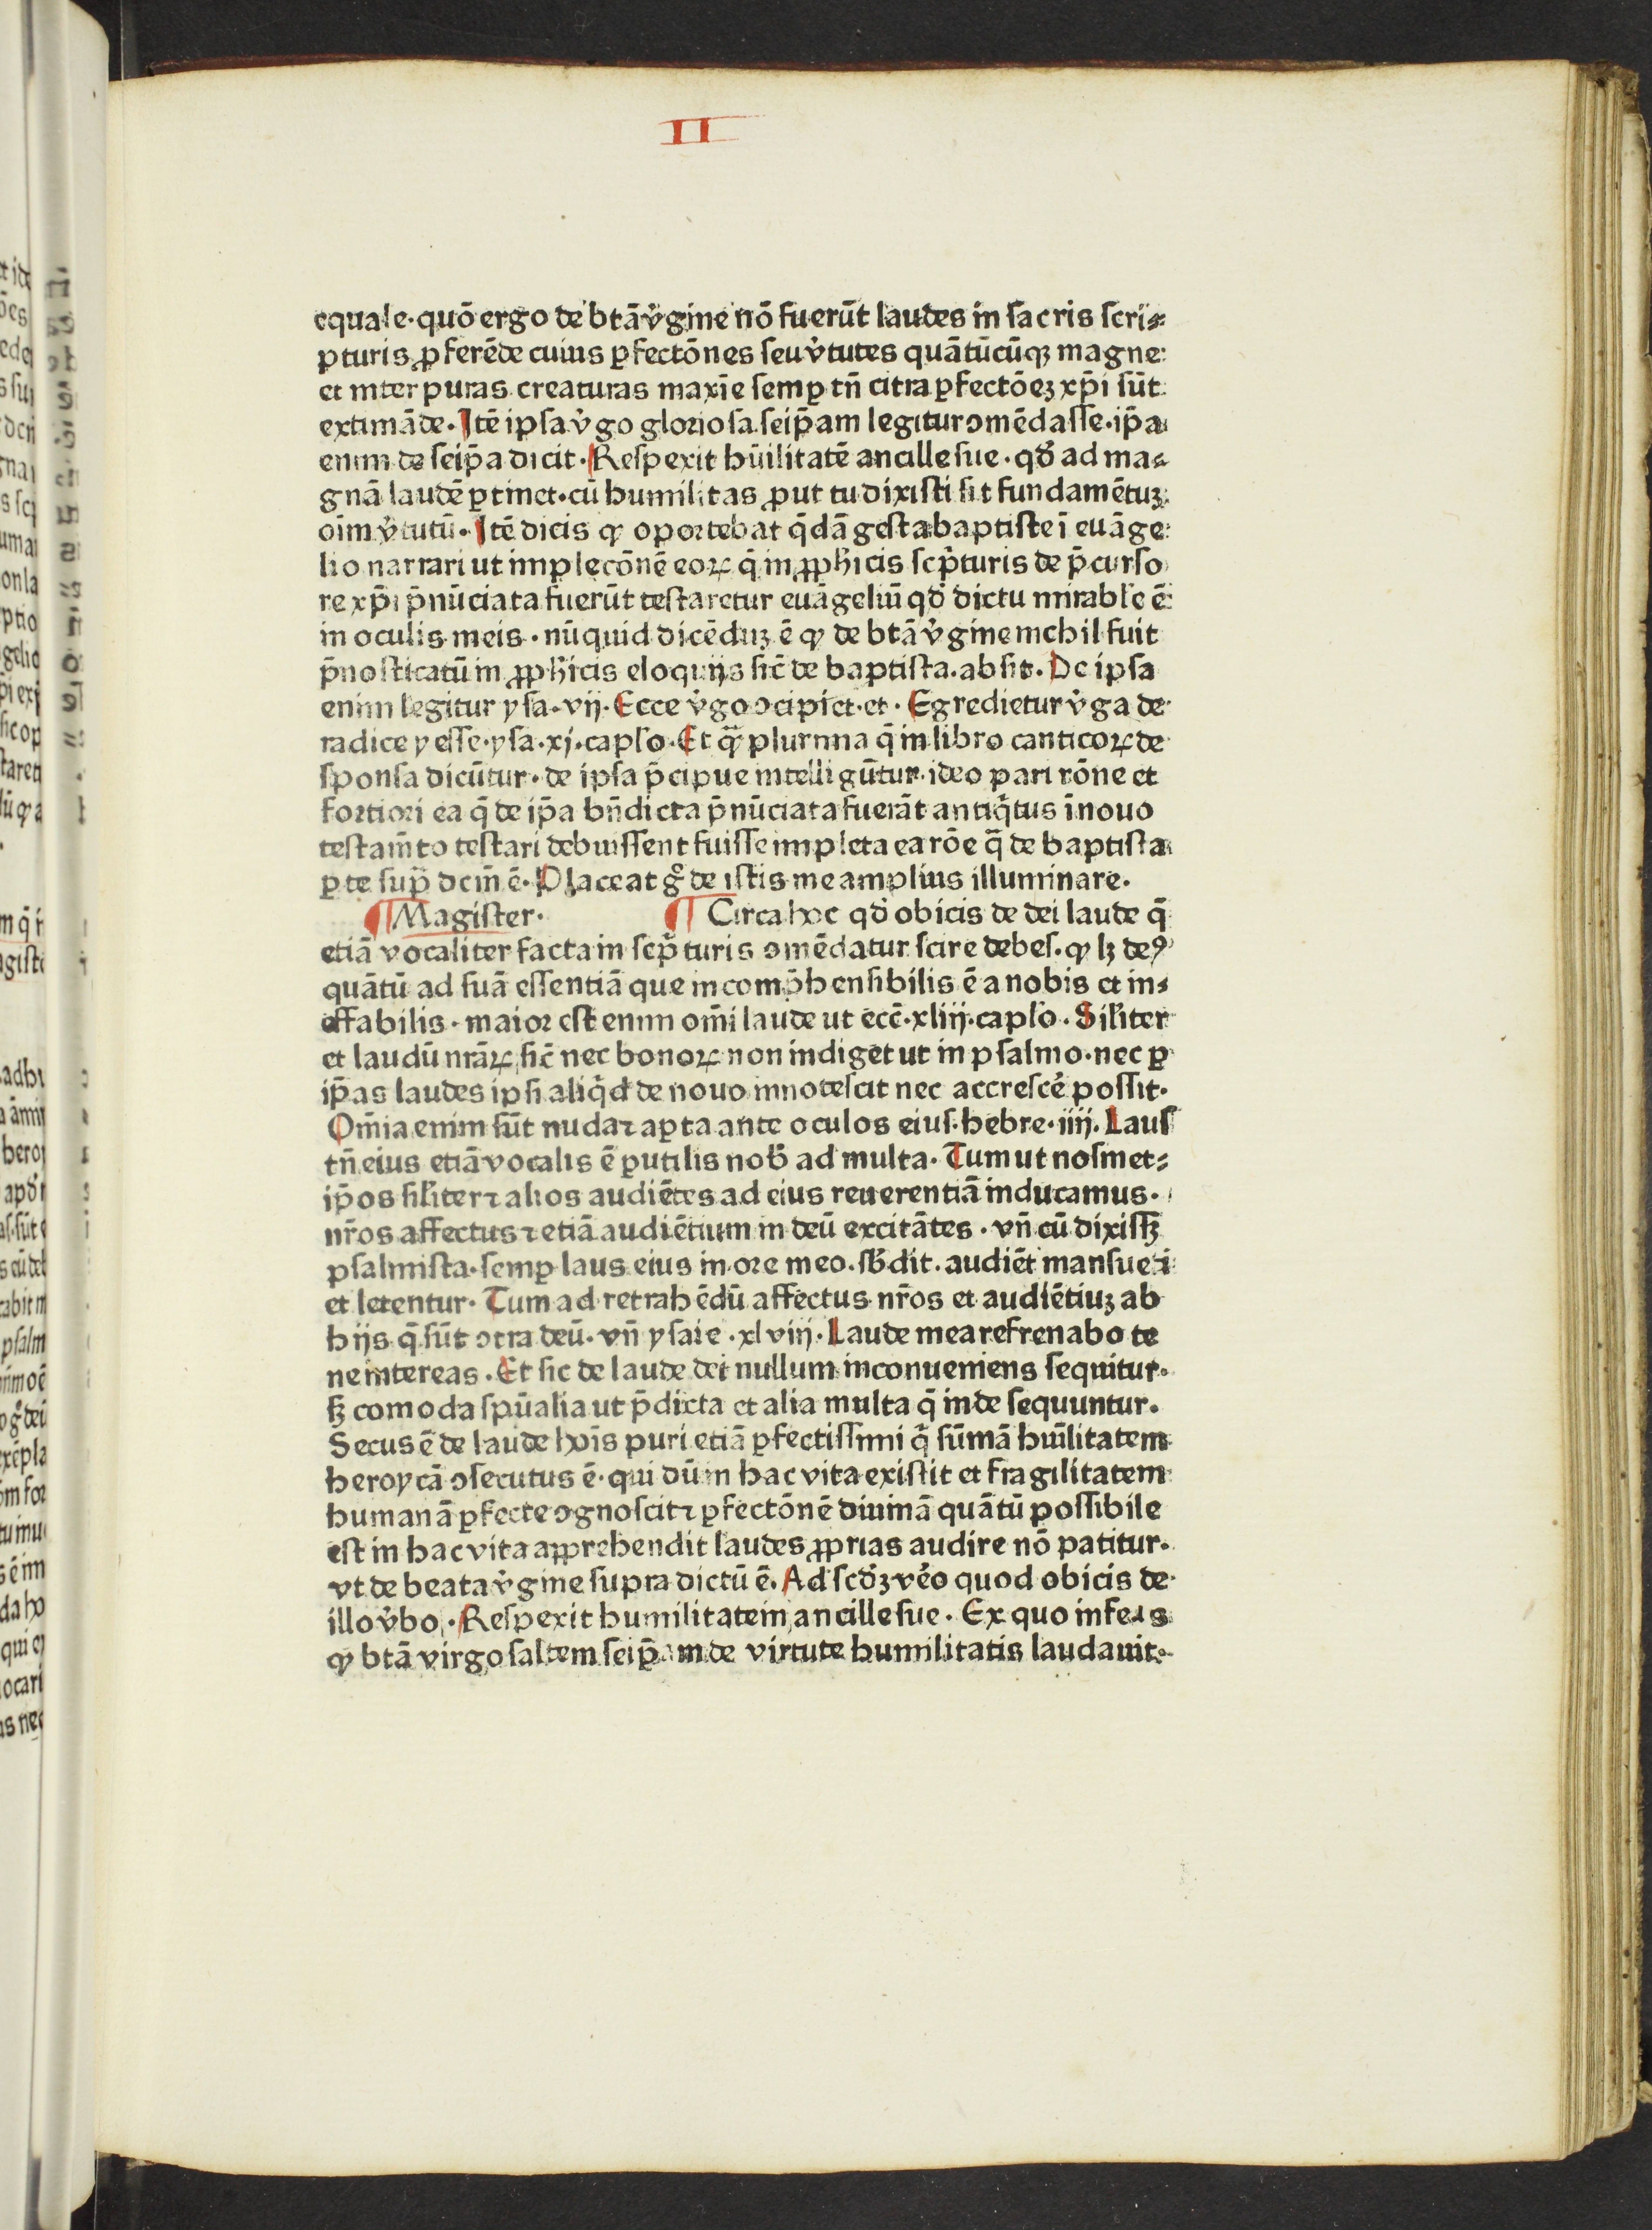 II
equale·quō ergo de btā v̾gine nō fuerūt laudes in sacris scri⸗
pturis ꝓferēde cuius ꝑfectōnes seu v̾tutes quātūcūqꝫ magne:
et inter puras creaturas maxīe semꝑ tn̄ citra ꝑfectōeꝫ xp̄i sūt
extimāde. Itē ipsa v̾go gloriosa seip̄am legitur ↄmēdasse.ip̄a
enim de seip̄a dicit. Respexit hūilitatē ancille sue·qd̾ ad ma⸗
gnā laudē ꝑtinet·cū humilitas ꝓut tu dixisti sit fundamētuꝫ
oīm v̾tutū. Itē dicis ꝙ oportebat q̄dā gesta baptiste ī euāge
lio narrari ut implecōnē eoꝝ q̄ in ꝓph̾icis sc̾pturis de p̄curso
re xp̄i p̄nūciata fuerūt testaretur euāgeliū qd̾ dictu mirabl̾e ē
in oculis meis·nūquid dicēduꝫ ē ꝙ de btā v̾gine nichil fuit
p̄nosticatū in ꝓph̾icis eloquijs sic̄ de baptista.absit. De ipsa
enim legitur ysa·vij. Ecce v̾go ↄcipiet·et· Egredietur v̾ga de
radice yesse·ysa·xj·capl̾o. Et q̄ plurima q̄ in libro canticoꝝ de
sponsa dicūtur·de ipsa p̄cipue intelligūtur.ideo pari rōne et
fortiori ea q̄ de ip̄a bn̄dicta p̄nūciata fuerāt antiq̾tus ī nouo
testam̄to testari debuissent fuisse impleta ea rōe q̄ de baptista
ꝑ te sup̄ dcm̄ ē. Placeat g̊ de istis me amplius illuminare.
¶ Magister. ¶ Circa hoc qd̾ obicis de dei laude q̄
etiā vocaliter facta in sc̾pturis ↄmēdatur scire debes.ꝙ lꝫ deꝰ
quātū ad suā essentiā que incomp̄hensibilis ē a nobis et in⸗
effabilis·maior est enim om̄i laude ut ecc̄·xliij·capl̾o. Sil̾iter
et laudū nrāꝝ sic̄ nec bonoꝝ non indiget ut in psalmo·nec ꝑ
ip̄as laudes ipsi aliq̾d de novo innotescit nec accresce̾ possit.
Om̄ia enim sūt nuda ⁊ aꝑta ante oculos eius.hebre·iiij. Laus
tn̄ eius etiā vocalis ē ꝑutilis nob̾ ad multa. Tum ut nosmet⸗
ip̄os sil̾iter ⁊ alios audiētes ad eius reuerentiā inducamus.
nr̄os affectus ⁊ etiā audiētium in deū excitātes. vn̄ cū dixissꝫ
psalmista·semꝑ laus eius in ore meo.sb̾dit. audiēt mansueti
et letentur. Tum ad retrahēdū affectus nr̄os et audiētiuꝫ ab
hijs q̄ sūt ↄtra deū. vn̄ ysaie·xlviij. Laude mea refrenabo te
ne intereas. Et sic de laude dei nullum inconueniens sequitur.
sꝫ comoda spūalia ut p̄dicta et alia multa q̄ inde sequuntur.
Secus ē de laude hoīs puri etiā ꝑfectissimi q̾ sūmā hūilitatem
heroycā ↄsecutus ē·qui dū in hac vita existit et fragilitatem
humanā ꝑfecte ↄgnoscit ⁊ ꝑfectōnē diuinā quātū possibile
est in hac vita apprehendit laudes ꝓprias audire nō patitur.
vt de beata v̾gine supra dictū ē. Ad scd̾ꝫ ve̾o quod obicis de
illo v̾bo. Respexit humilitatem ancille sue. Ex quo infers
ꝙ btā virgo saltem seip̄am de virtute humilitatis laudauit.